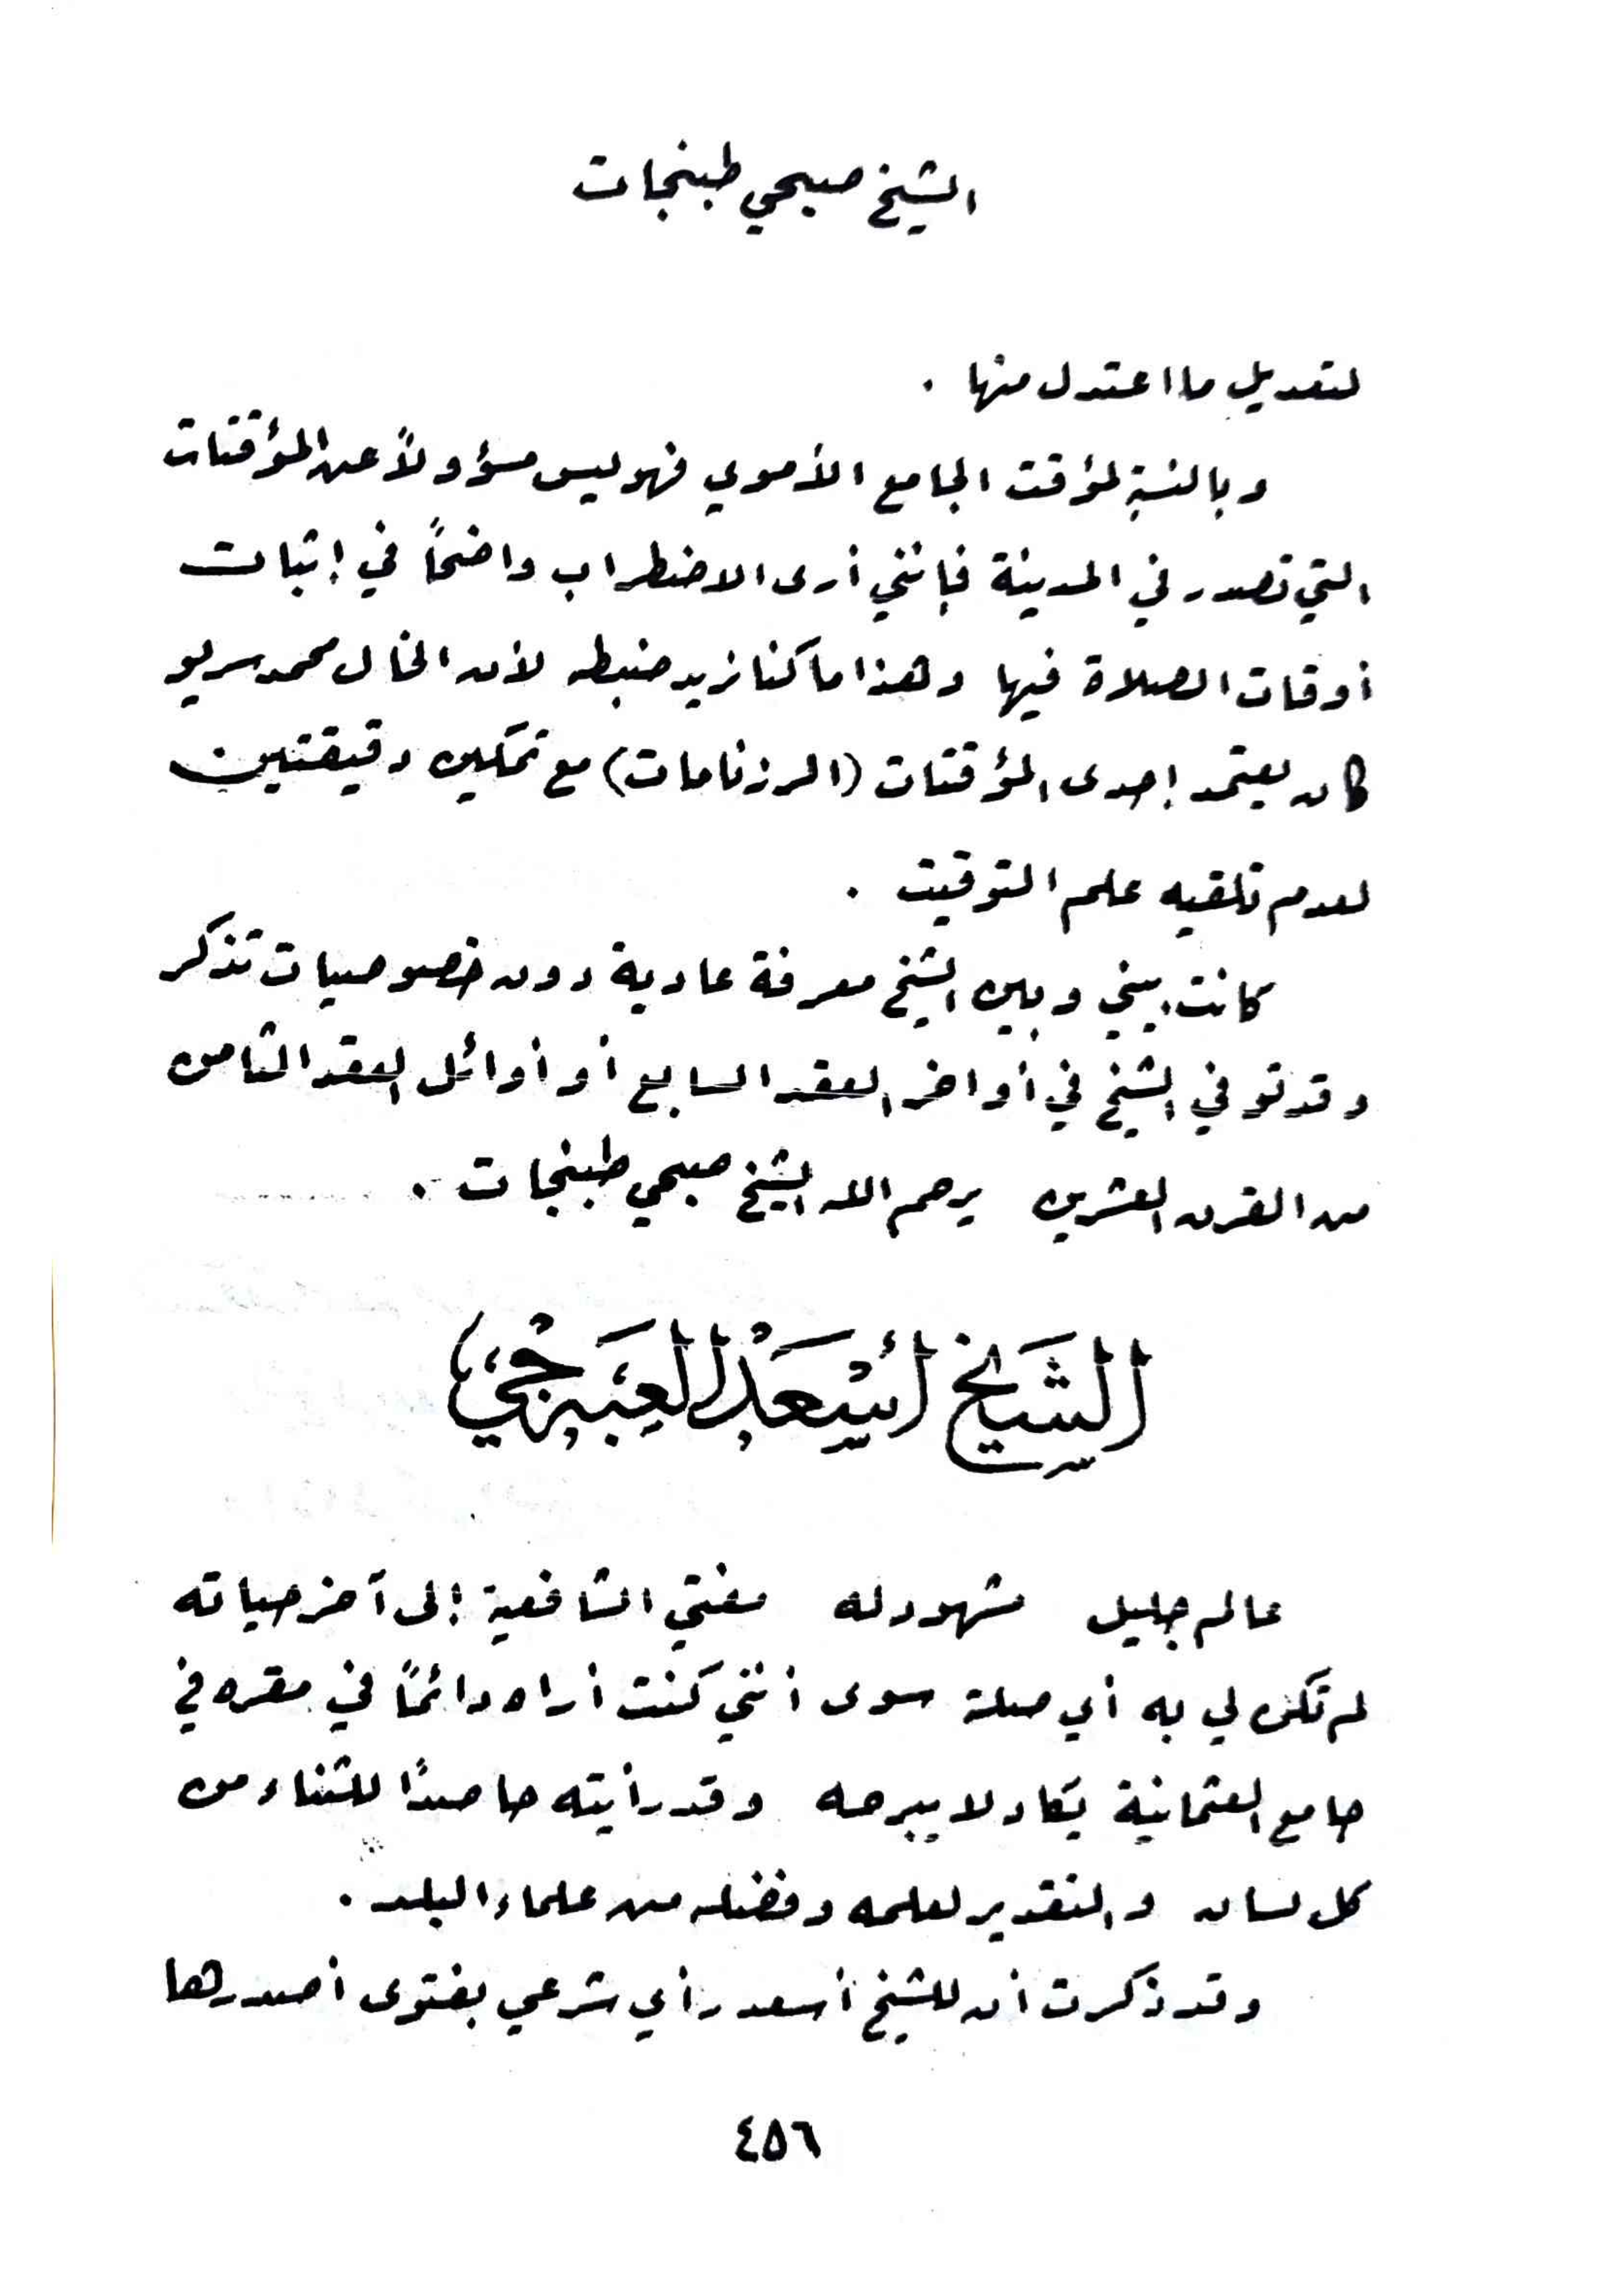 الشيخ صبحي طبنجات
لتعديل ما اعتدل منها .
وبالنسبة لمؤقت الجامع الأموي فهو ليس مسؤولاً عن المؤقتات
التي تصدر في المدينة فإنني أرى الاضطراب واضحاً في إثبات
أوقات الصلاة فيها وهذا ما كنا نريد ضبطه لأن الخال محمد سريو
كان يعتمد إحدى المؤقتات (الرزنامات) مع تمكين دقيقتين
لعدم تلقيه علم التوقيت .
كانت بيني وبين الشيخ معرفة عادية دون خصوصيات تذكر
وقد توفي الشيخ في أواخر العقد السابع أو أوائل العقد الثامن
من القرن العشرين يرحم الله الشيخ صبحي طبنجات .
الشَيخ أسْعَد العَبَه جْي
عالم جليل مشهود له مفتي الشافعية إلى آخر حياته
لم تكن لي به أي صلة سوى أنني كنت أراه دائماً في مقره في
جامع العثمانية يكاد لا يبرحه وقد رأيته حاصداً للثناء من
كل لسان والتقدير لعلمه وفضله من علماء البلد .
وقد ذكرت أن للشيخ أسعد رأي شرعي بفتوى أصدرها
٤٥٦